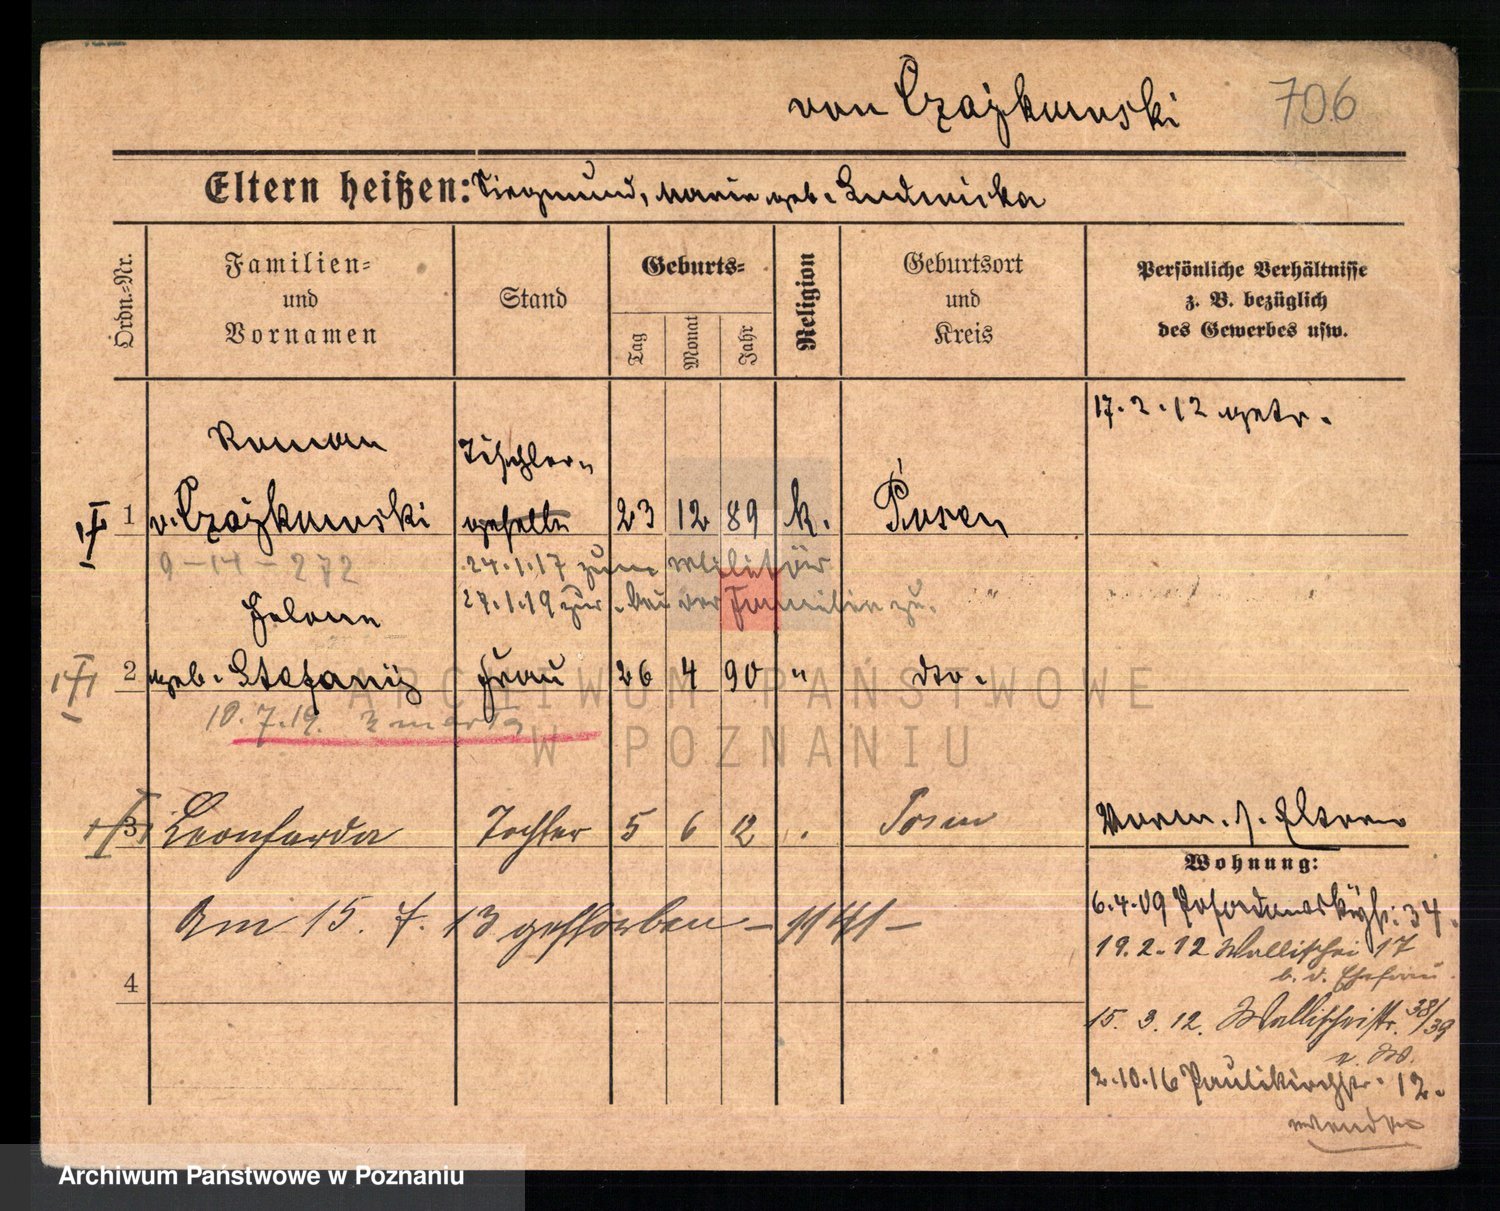 von Czajkowski 706
Eltern heißen: Siegmund, Marie geb. Ludwicka
Ordn.=Nr.
Familien=
und
Vornamen
Stand
Geburts=
Tag
Monat
Jahr
Religion
Geburtsort
und
Kreis
Persönliche Verhältnisse
z. B. bezüglich
des Gewerbes usw.
17.2.12 getr.
Roman Tischler-
1 v. Czajkowski geselle 23 12 89 k. Posen
9-14-272 24.1.17 zum Militär
27.1.19 zur. bei der Familie zu.
Helene
2 geb. Stefaniz Frau 26 4 90 " dto.
10.7.19. zmarła
3 Leonharda Tochter 5 6 12 Posen
Vorm. s. Eltern
Am 15.7.13 gestorben - 1141 -
4
Wohnung:
6.4.09 34.
19.2.12 Wallischei 17
b. d. Ehefrau
15.3.12. Wallischeistr. 38/39
2.10.16 Paulikirchstr. 12.
wenden
ARCHIWUM PAŃSTWOWE
W POZNANIU
Archiwum Państwowe w Poznaniu